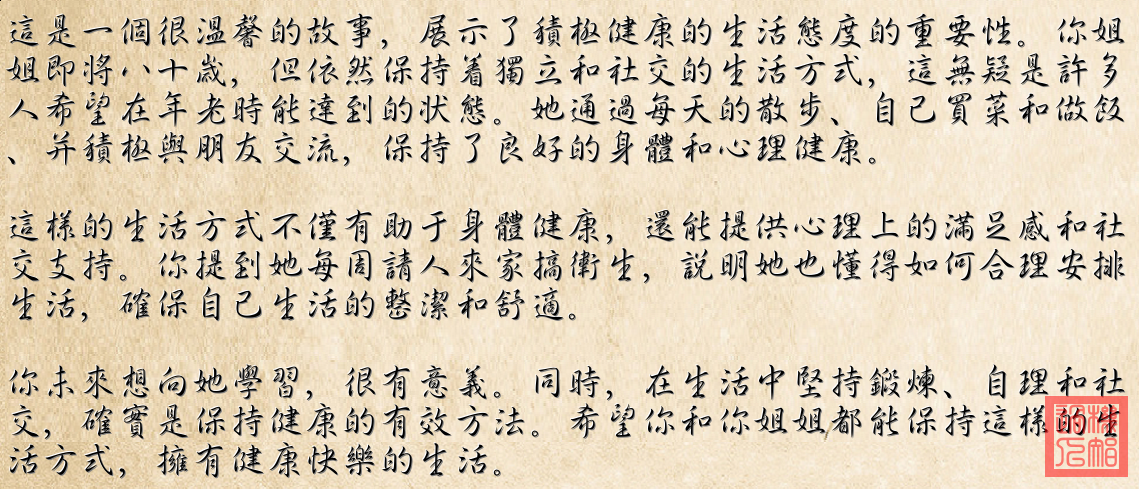 這是一個很溫馨的故事，展示了積極健康的生活態度的重要性。你姐
姐即將八十歲，但依然保持着獨立和社交的生活方式，這無疑是許多
人希望在年老時能達到的狀態。她通過每天的散步、自己買菜和做飯
、并積極與朋友交流，保持了良好的身體和心理健康。
這樣的生活方式不僅有助于身體健康，還能提供心理上的滿足感和社
交支持。你提到她每周請人來家搞衛生，説明她也懂得如何合理安排
生活，確保自己生活的整潔和舒適。
你未來想向她學習，很有意義。同時，在生活中堅持鍛煉、自理和社
交，確實是保持健康的有效方法。希望你和你姐姐都能保持這樣的生
活方式，擁有健康快樂的生活。